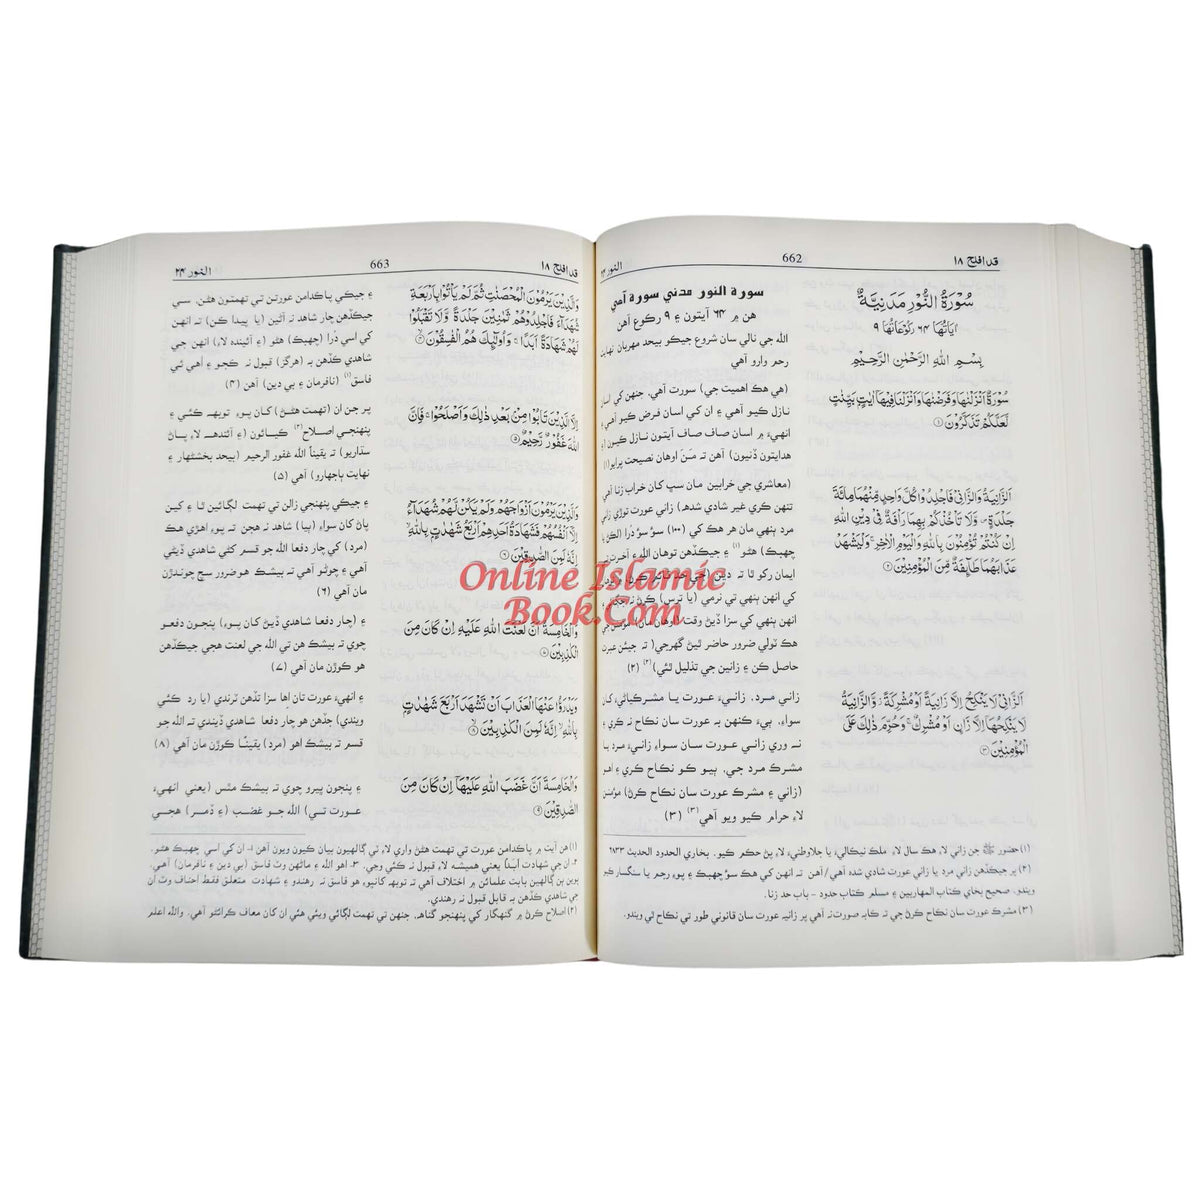 قد افلح ١٨
662
النور ٢٤
سُوْرَةُ النُّوْرِ مَدَنِيَّةٌ
اٰيَاتُهَا ٦٤ رُكُوْعَاتُهَا ٩
بِسْمِ اللهِ الرَّحْمٰنِ الرَّحِيْمِ
سُوْرَةٌ اَنْزَلْنٰهَا وَفَرَضْنٰهَا وَاَنْزَلْنَا فِيْهَاۤ اٰيٰتٍۭ بَيِّنٰتٍ
لَّعَلَّكُمْ تَذَكَّرُوْنَ ١
اَلزَّانِيَةُ وَالزَّانِيْ فَاجْلِدُوْا كُلَّ وَاحِدٍ مِّنْهُمَا مِائَةَ
جَلْدَةٍ وَّلَا تَأْخُذْكُمْ بِهِمَا رَأْفَةٌ فِيْ دِيْنِ اللهِ
اِنْ كُنْتُمْ تُؤْمِنُوْنَ بِاللهِ وَالْيَوْمِ الْاٰخِرِ وَلْيَشْهَدْ
عَذَابَهُمَا طَآئِفَةٌ مِّنَ الْمُؤْمِنِيْنَ ٢
اَلزَّانِيْ لَا يَنْكِحُ اِلَّا زَانِيَةً اَوْ مُشْرِكَةً وَّالزَّانِيَةُ
لَا يَنْكِحُهَاۤ اِلَّا زَانٍ اَوْ مُشْرِكٌ وَحُرِّمَ ذٰلِكَ عَلَى
الْمُؤْمِنِيْنَ ٣
سورة النور مدني سورة آهي
هن ۾ ٦٤ آيتون ۽ ٩ رڪوع آهن
الله جي نالي سان شروع جيڪو بيحد مهربان نهايت
رحم وارو آهي
(هي هڪ اهميت جي) سورت آهي، جنهن کي اسان
نازل ڪيو آهي ۽ ان کي اسان فرض ڪيو آهي ۽
انهيءَ ۾ اسان صاف صاف آيتون نازل ڪيون (۽
هدايتون ڏنيون) آهن ته مَنَ اوهان نصيحت پرايو (١)
(معاشري جي خرابين مان سڀ کان خراب زنا آهي
تنهن ڪري غير شادي شده) زاني عورت توڙي زاني
مرد ٻنهي مان هر هڪ کي (١٠٠) سؤ سؤ ذرا (لڪڻ يا
چهبڪ) هڻو(١) ۽ جيڪڏهن توهان الله ۽ آخرت تي
ايمان رکو ٿا ته دين
کي انهن ٻنهي تي نرمي (يا ترس)
انهن ٻنهي کي سزا ڏيڻ وقت (اوهان مان) مؤمنن جي
هڪ ٽولي ضرور حاضر ٿيڻ گهرجي (ته جيئن عبرت
حاصل ڪن ۽ زانين جي تذليل ٿئي)(٢) (٢)
زاني مرد، زانيءَ عورت يا مشرڪياڻي کان
سواءِ، ٻيءَ ڪنهن به عورت سان نڪاح نه ڪري ۽
نه وري زاني عورت سان سواءِ زانيءَ مرد يا
مشرڪ مرد جي، ٻيو ڪو نڪاح ڪري ۽ اهو
(زاني ۽ مشرڪ عورت سان نڪاح ڪرڻ) مؤمنن
لاءِ حرام ڪيو ويو آهي(٣) (٣)
(١) حضور ﷺ جن زاني لاءِ هڪ سال لاءِ ملڪ نيڪاليءَ يا جلاوطنيءَ لاءِ پڻ حڪم ڪيو. بخاري الحدود الحديث ٦٨٣٣
(٢) پر جيڪڏهن زاني مرد يا زاني عورت شادي شده آهي ته انهن کي هڪ سؤ چهبڪ ۽ پوءِ رجم يا سنگسار ڪيو
ويندو. صحيح بخاري کتاب المهاربين ۽ مسلم کتاب حدود - باب حد زنا.
(٣) مشرڪ عورت سان نڪاح ڪرڻ جي ته ڪابه صورت نه آهي پر زانيه عورت سان قانوني طور تي نڪاح ٿي ويندو.
قد افلح ١٨
663
النور ٢٤
وَالَّذِيْنَ يَرْمُوْنَ الْمُحْصَنٰتِ ثُمَّ لَمْ يَأْتُوْا بِاَرْبَعَةِ
شُهَدَآءَ فَاجْلِدُوْهُمْ ثَمٰنِيْنَ جَلْدَةً وَّلَا تَقْبَلُوْا
لَهُمْ شَهَادَةً اَبَدًا وَاُولٰٓئِكَ هُمُ الْفٰسِقُوْنَ ٤
اِلَّا الَّذِيْنَ تَابُوْا مِنْۢ بَعْدِ ذٰلِكَ وَاَصْلَحُوْا فَاِنَّ
اللهَ غَفُوْرٌ رَّحِيْمٌ ٥
وَالَّذِيْنَ يَرْمُوْنَ اَزْوَاجَهُمْ وَلَمْ يَكُنْ لَّهُمْ شُهَدَآءُ
اِلَّاۤ اَنْفُسُهُمْ فَشَهَادَةُ اَحَدِهِمْ اَرْبَعُ شَهٰدٰتٍۭ بِاللهِ
اِنَّهٗ لَمِنَ الصّٰدِقِيْنَ ٦
وَالْخَامِسَةُ اَنَّ لَعْنَتَ اللهِ عَلَيْهِ اِنْ كَانَ مِنَ
الْكٰذِبِيْنَ ٧
وَيَدْرَؤُا عَنْهَا الْعَذَابَ اَنْ تَشْهَدَ اَرْبَعَ شَهٰدٰتٍۭ
بِاللهِ اِنَّهٗ لَمِنَ الْكٰذِبِيْنَ ٨
وَالْخَامِسَةَ اَنَّ غَضَبَ اللهِ عَلَيْهَاۤ اِنْ كَانَ مِنَ
الصّٰدِقِيْنَ ٩
۽ جيڪي پاڪدامن عورتن تي تهمتون هڻن. سي
جيڪڏهن چار شاهد نه آڻين (يا پيدا ڪن) ته انهن
کي اسي ذرا (چهبڪ) هڻو (۽ آئنده لاءِ) انهن جي
شاهدي ڪڏهن به (هرگز) قبول نه ڪجو ۽ اُهي ئي
فاسق(١) (نافرمان ۽ بي دين) آهن (٤)
پر جن ان (تهمت هڻڻ) کان پوءِ توبهه ڪئي ۽
پنهنجي اصلاح(٢) ڪيائون (۽ آئندهه لاءِ پاڻ
سڌاريو) ته يقيناً الله غفور الرحيم (بيحد بخشڻهار ۽
نهايت ٻاجهارو) آهي (٥)
۽ جيڪي پنهنجي زالن تي تهمت لڳائين ٿا ۽ کين
پاڻ کان سواءِ (ٻيا) شاهد نه هجن ته پوءِ اهڙي هڪ
(مرد) کي چار دفعا الله جو قسم کڻي شاهدي ڏيڻي
آهي ۽ چوڻو آهي ته بيشڪ هو ضرور سچ چوندڙن
مان آهي (٦)
۽ (چار دفعا شاهدي ڏيڻ کان پوءِ) پنجون دفعو
چوي ته بيشڪ هن تي الله جي لعنت هجي جيڪڏهن
هو ڪوڙن مان آهي (٧)
۽ انهيءَ عورت تان اِها سزا تڏهن ٽرندي (يا رد ڪئي
ويندي) جڏهن هو چار دفعا شاهدي ڏيندي ته الله جو
قسم ته بيشڪ اهو (مرد) يقيناً ڪوڙن مان آهي (٨)
۽ پنجون ڀيرو چوي ته بيشڪ مٿس (يعني انهيءَ
عورت تي) الله جو غضب (۽ ڏمر) هجي
(١) هن آيت ۾ پاڪدامن عورت تي تهمت هڻڻ واري لاءِ ٽي ڳالهيون بيان ڪيون ويون آهن ١- ان کي اسي چهبڪ هڻو.
٢- ان جي شهادت ابداً يعني هميشه لاءِ قبول نه ڪئي وڃي. ٣- اهو الله ۽ ماڻهن وٽ فاسق (بي دين ۽ نافرمان) آهي.
(٢) اصلاح ڪرڻ ۾ گنهگار کي پنهنجو گناهه، جنهن تي تهمت لڳائي ويئي هئي ان کان معاف ڪرائڻو آهي. والله اعلم
Online Islamic
Book.Com